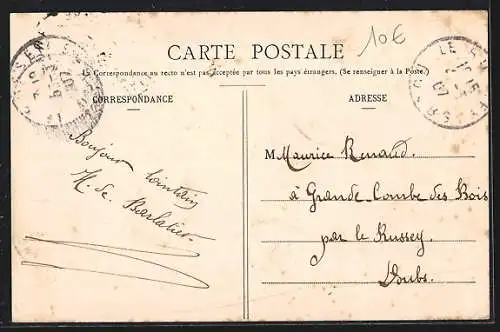 10€
CARTE POSTALE
La Correspondance au recto n'est pas acceptée par tous les pays étrangers. (Se renseigner à la Poste.)
CORRESPONDANCE
Bonjour lointain
M. de Barbalier
ADRESSE
M Maurice Renaud.
à Grande Combe des Bois
par le Russey.
Doubs.